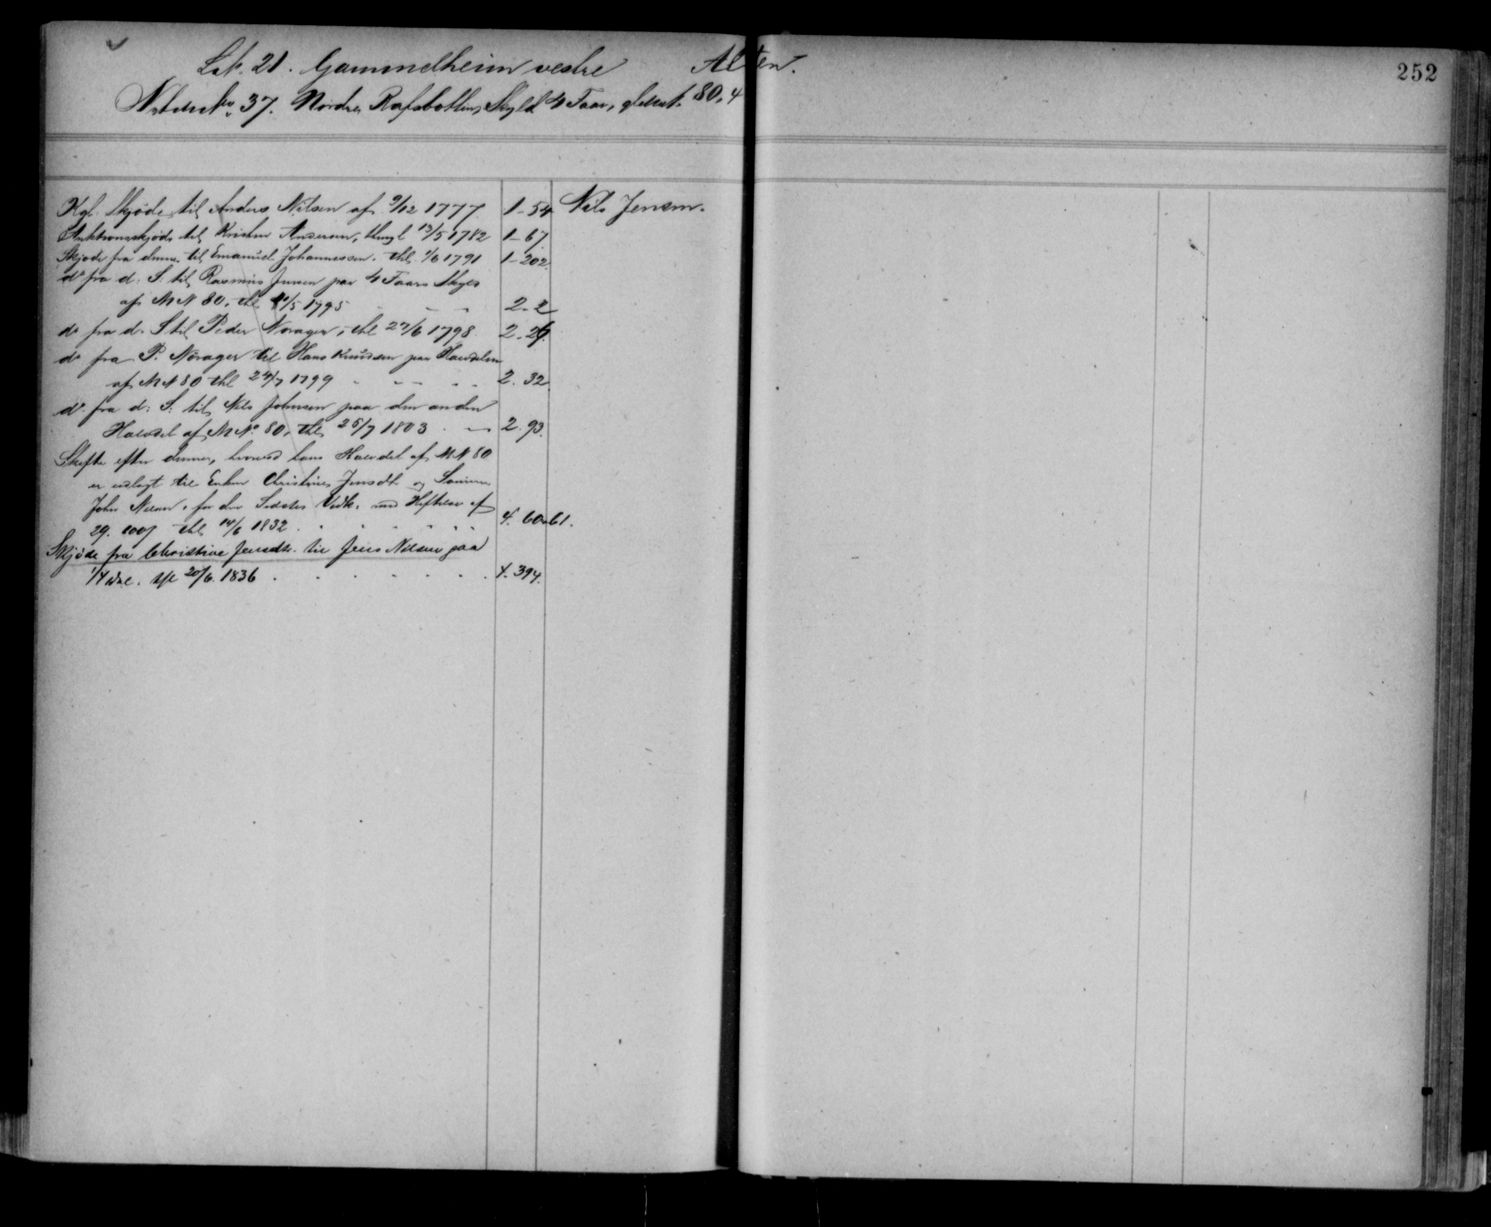 Lit. 21. Gammelheim vestre Alten.
252
Matrik No 37. Nordre Rafsbotten, Skyld 4 Faar, gl. Matr. 80, 4
Kgl. Skjøde til Anders Nilsen af 9/12 1777. 1-54 Nils Jensen.
Auktionsskjøde til Kristen Andersen, thingl 13/5 1782 1-67
Skjøde fra denne til Emanuel Johannessen. thl. 1/6 1791 1-202.
do fra d. S. til Rasmus Jensen paa 4 Faars Skyld
af M N 80, thl. 21/5 1795 - - 2-2
do fra d. S til Peder Norager, thl 27/6 1798 2-26.
do fra P. Norager til Hans Knudsen paa Halvdelen
af M N 80 thl 24/7 1799 - - - - 2. 32.
do fra d. S. til Nils Johnsen paa den anden
Halvdel af M No 80, thl, 25/7 1803 - 2. 93.
Skifte efter denne, hvorved hans Halvdel af M N 80
er udlagt til Enken Christine Jensdt. og Sønnen
John Nilsen, for den Sidstes Vedk. med Heftelse af
29. thl 14/6 1832 . . . . . 4. 60-61.
Skjøde fra Christine Jensdtr. til Jens Nilsen paa
1/4 Del. thl 20/6. 1836 . . . . . 4. 394.